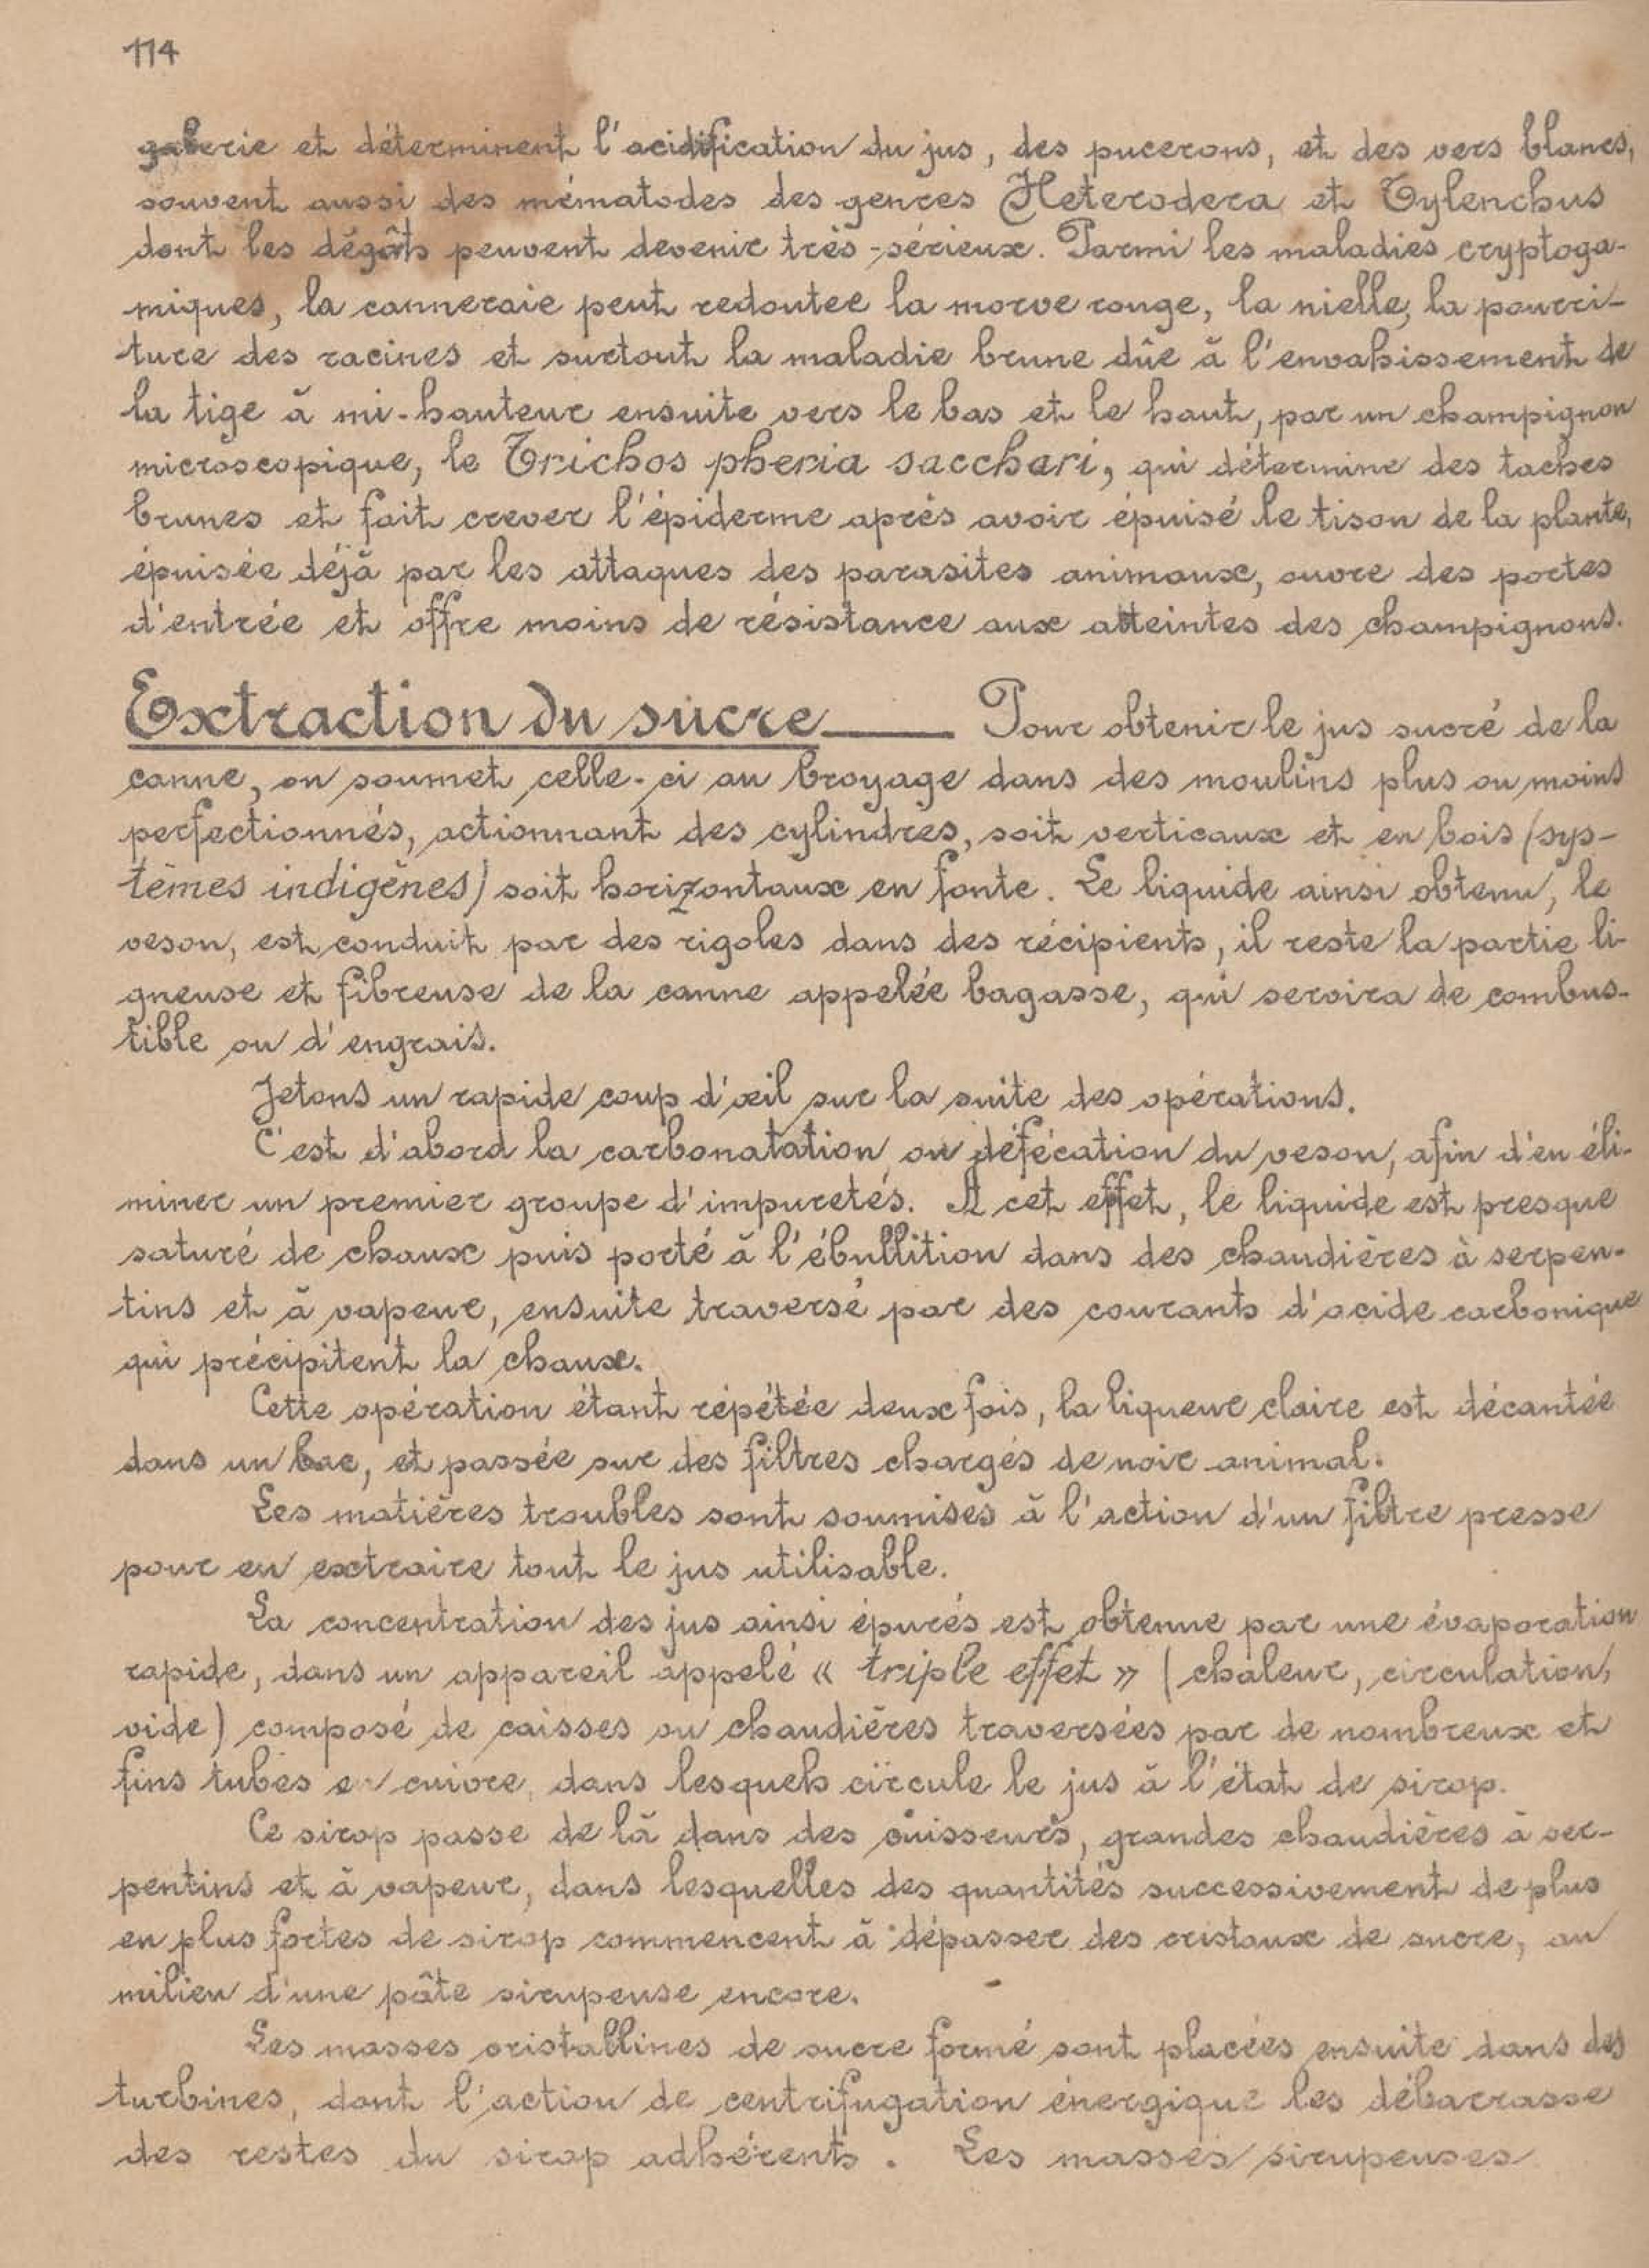 114
galerie et déterminent l'acidification du jus, des pucerons, et des vers blancs,
souvent aussi des mématodes des genres Heterodera et Tylenchus
dont les dégâts peuvent devenir très-sérieux. Parmi les maladies cryptoga-
miques, la canneraie peut redouter la morve rouge, la nielle, la pourri-
ture des racines et surtout la maladie brune dûe à l'envahissement de
la tige à mi-hauteur ensuite vers le bas et le haut, par un champignon
microscopique, le Trichos pheria sacchari, qui détermine des taches
brunes et fait crever l'épiderme après avoir épuisé le tison de la plante,
épuisée déjà par les attaques des parasites animaux, ouvre des portes
d'entrée et offre moins de résistance aux atteintes des champignons.
Extraction du sucre —— Pour obtenir le jus sucré de la
canne, on soumet celle-ci au broyage dans des moulins plus ou moins
perfectionnés, actionnant des cylindres, soit verticaux et en bois (sys-
tèmes indigènes) soit horizontaux en fonte. Le liquide ainsi obtenu, le
veson, est conduit par des rigoles dans des récipients, il reste la partie li-
gneuse et fibreuse de la canne appelée bagasse, qui servira de combus-
tible ou d'engrais.
Jetons un rapide coup d'œil sur la suite des opérations.
C'est d'abord la carbonatation ou défécation du veson, afin d'en éli-
miner un premier groupe d'impuretés. A cet effet, le liquide est presque
saturé de chaux puis porté à l'ébullition dans des chaudières à serpen-
tins et à vapeur, ensuite traversé par des courants d'acide carbonique
qui précipitent la chaux.
Cette opération étant répétée deux fois, la liqueur claire est décantée
dans un bac, et passée sur des filtres chargés de noir animal.
Les matières troubles sont soumises à l'action d'un filtre presse
pour en extraire tout le jus utilisable.
La concentration des jus ainsi épurés est obtenue par une évaporation
rapide, dans un appareil appelé « triple effet » (chaleur, circulation,
vide) composé de caisses ou chaudières traversées par de nombreux et
fins tubes en cuivre, dans lesquels circule le jus à l'état de sirop.
Ce sirop passe de là dans des cuisseurs, grandes chaudières à ser-
pentins et à vapeur, dans lesquelles des quantités successivement de plus
en plus fortes de sirop commencent à dépasser des cristaux de sucre, au
milieu d'une pâte sirupeuse encore.
Les masses cristallines de sucre formé sont placées ensuite dans des
turbines, dont l'action de centrifugation énergique les débarrasse
des restes du sirop adhérents. Les masses sirupeuses